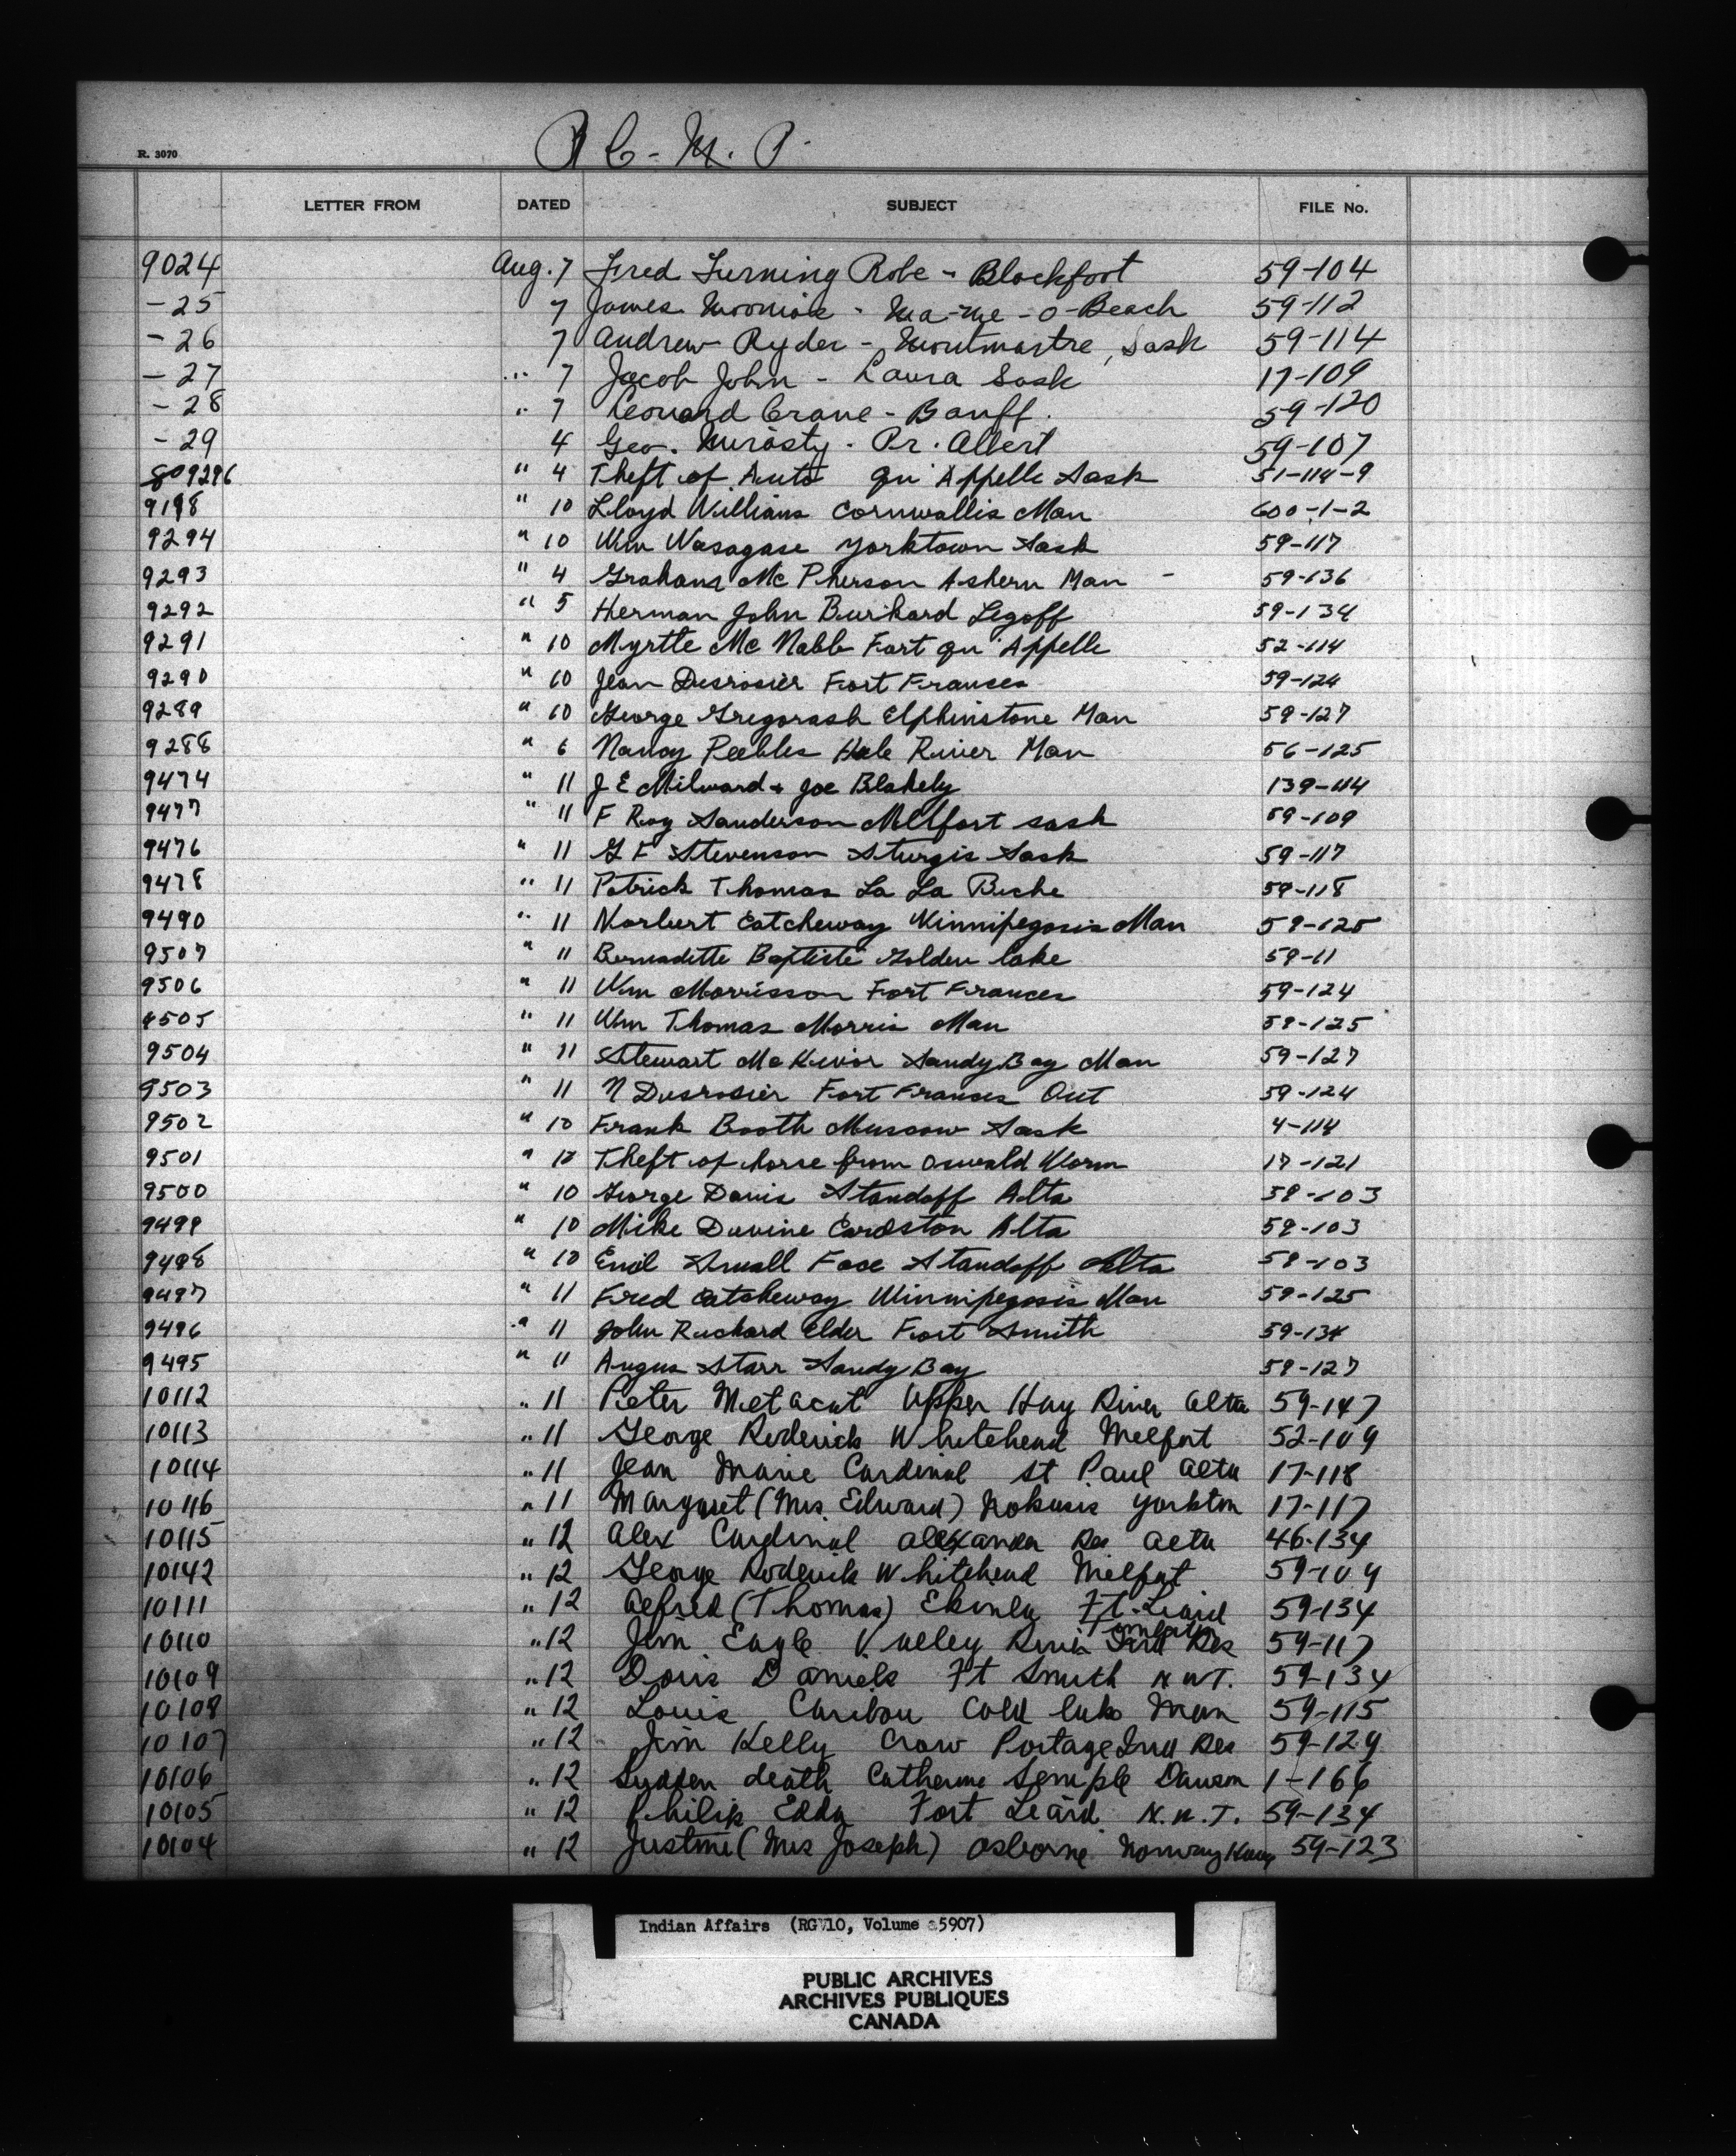 R C - M. P.
R. 3070
LETTER FROM DATED SUBJECT FILE No.
9024 Aug. 7 Fred Turning Robe - Blackfoot 59-104
-25 7 James - Ma-me-o-Beach 59-112
-26 7 Andrew Ryder - Montmartre, Sask 59-114
-27 " 7 Jacob John - Laura Sask 17-109
-28 " 7 Leonard Crane - Banff. 59-120
-29 4 Geo. Mirasty - Pr. Albert 59-107
809296 " 4 Theft of Auto Qu'Appelle Sask 51-114-9
9198 " 10 Lloyd Williams Cornwallis Man 600-1-2
9294 " 10 Wm Wasagase Yorktown Sask 59-117
9293 " 4 Graham Mc Pherson Ashern Man - 59-136
9292 " 5 Herman John Burkard Legoff 59-134
9291 " 10 Myrtle Mc Nabb Fort Qu'Appelle 52-114
9290 " 10 Jean Desrosier Fort Frances 59-124
9289 " 10 George Gregorash Elphinstone Man 59-127
9288 " 6 Nancy Peebles Hole River Man 56-125
9474 " 11 J E Milward + Joe Blakely 139-114
9477 " 11 F Roy Sanderson Melfort Sask 59-109
9476 " 11 G F Stevenson Sturgis Sask 59-117
9478 " 11 Patrick Thomas La La Biche 59-118
9490 " 11 Norbert Catcheway Winnipegosis Man 59-125
9507 " 11 Bernadette Baptiste Golden lake 59-11
9506 " 11 Wm Morrisson Fort Frances 59-124
9505 " 11 Wm Thomas Morris Man 59-125
9504 " 11 Stewart McKivor Sandy Bay Man 59-127
9503 " 11 N Desrosier Fort Frances Ont 59-124
9502 " 10 Frank Booth Muscow Sask 4-114
9501 " 10 Theft of horse from Oswald Worm 17-121
9500 " 10 George Davis Standoff Alta 59-103
9499 " 10 Mike Devine Cardston Alta 59-103
9498 " 10 Emil Small Face Standoff Alta 59-103
9497 " 11 Fred Catcheway Winnipegosis Man 59-125
9496 " 11 John Richard Elder Fort Smith 59-134
9495 " 11 Angus Starr Sandy Bay 59-127
10112 " 11 Peter Metacat Upper Hay River Alta 59-147
10113 " 11 George Roderick Whitehead Melfort 52-109
10114 " 11 Jean Marie Cardinal St Paul Alta 17-118
10116 " 11 Margaret (Mrs Edward) Nokusis Yorkton 17-117
10115 " 12 Alex Cardinal Alexander Res Alta 46-134
10142 " 12 George Roderick Whitehead Melfort 59-109
10111 " 12 Alfred (Thomas) Ft. Liard 59-134
10110 " 12 Jim Eagle Valley River Ind Res 59-117
10109 " 12 Doris Daniels Ft Smith N.W.T. 59-134
10108 " 12 Louis Caribou Cold lake Man 59-115
10107 " 12 Jim Kelly Crow Portage Ind Res 59-129
10106 " 12 Sudden death Catherine Semple Dawson 1-166
10105 " 12 Philip Edda Fort Leard N.W.T. 59-134
10104 " 12 Justine (Mrs Joseph) Osborne Norway House 59-123
Indian Affairs (RG 10, Volume 5907)
PUBLIC ARCHIVES
ARCHIVES PUBLIQUES
CANADA